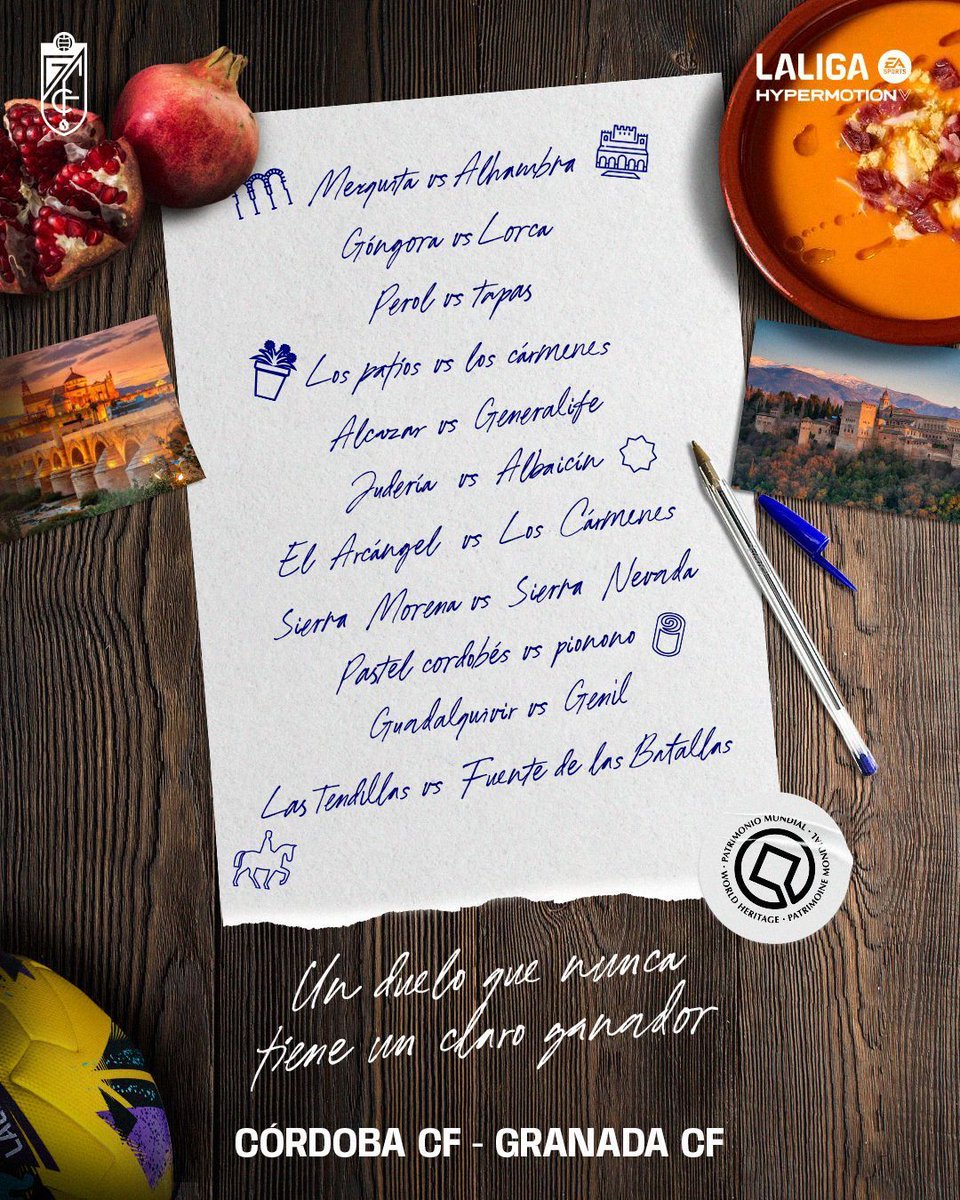 LALIGA EA SPORTS
HYPERMOTION
Mezquita vs Alhambra
Góngora vs Lorca
Perol vs tapas
Los patios vs los cármenes
Alcazar vs Generalife
Judería vs Albaicín
El Arcángel vs Los Cármenes
Sierra Morena vs Sierra Nevada
Pastel cordobés vs pionono
Guadalquivir vs Genil
Las Tendillas vs Fuente de las Batallas
PATRIMONIO MUNDIAL · WORLD HERITAGE · PATRIMOINE MONDIAL
Un duelo que nunca
tiene un claro ganador
CÓRDOBA CF - GRANADA CF